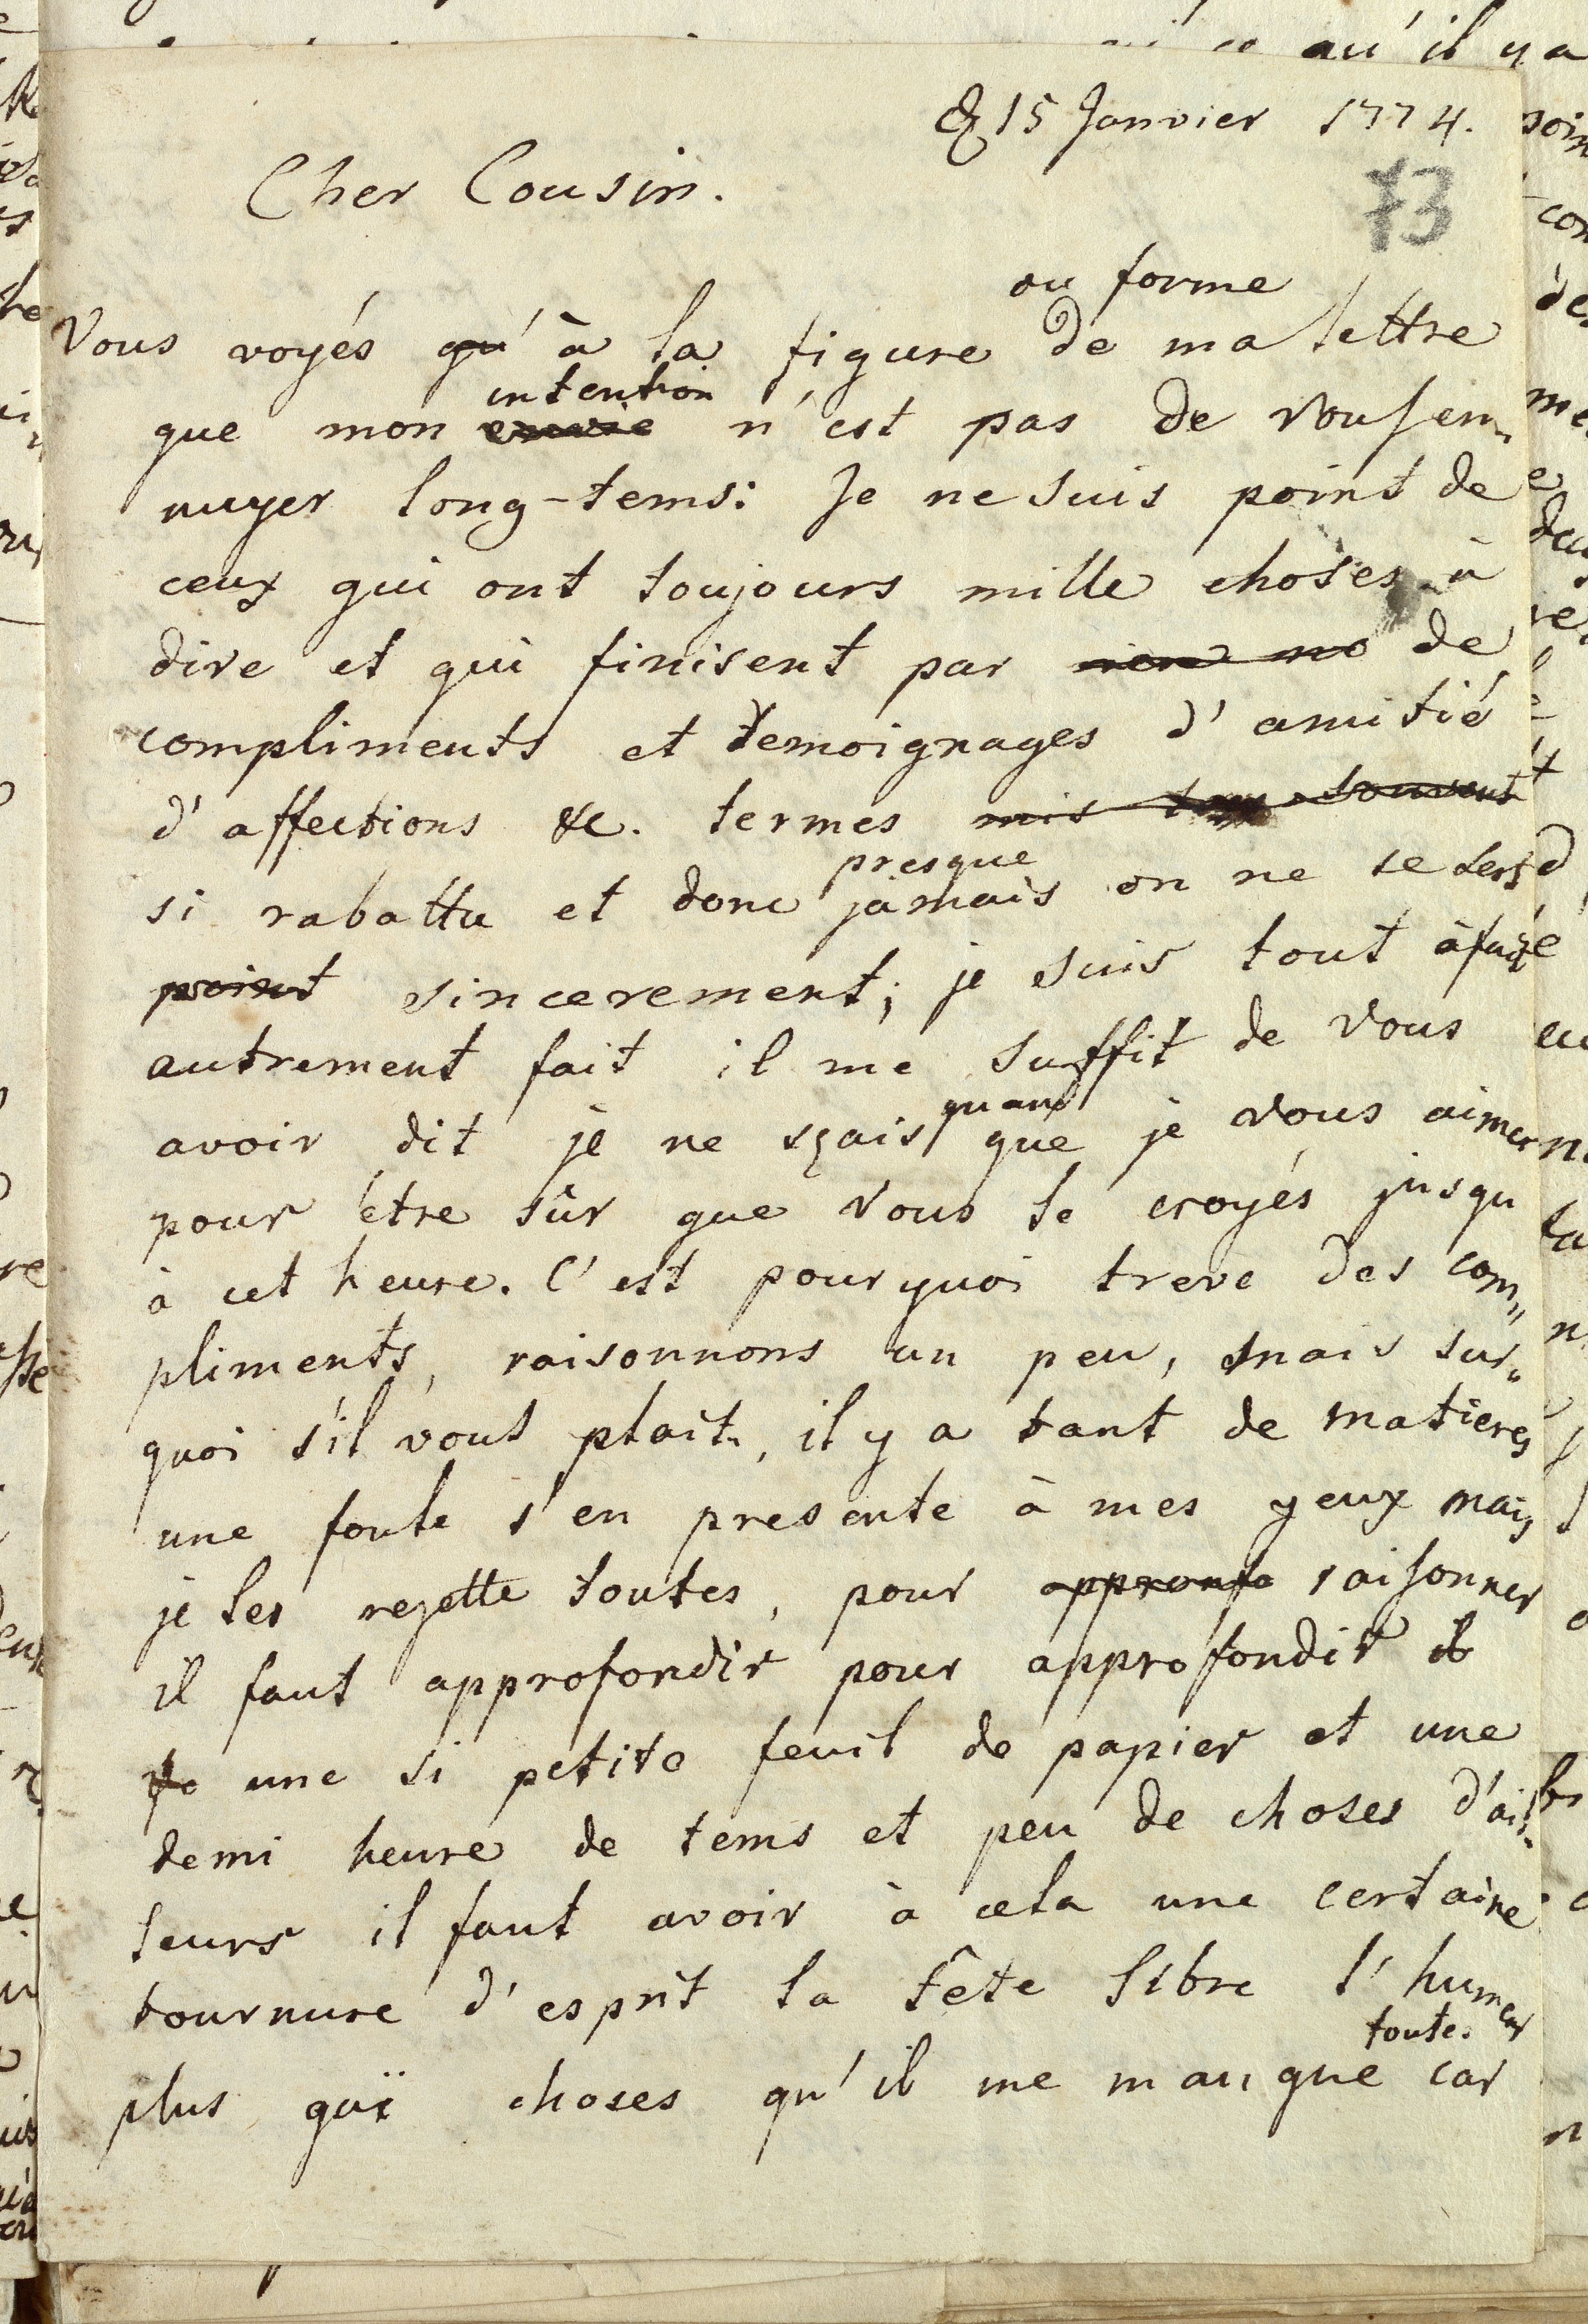 15 Janvier 1774.
73
Cher Cousin.
ou forme
Vous voyés qu'à la figure de ma lettre
intention
que mon envie n'est pas de vous en„
nuyer long-tems: Je ne suis point de
ceux qui ont toujours mille choses à
dire et qui finisent par de
compliments et temoignages d'amitié
d'affections &c. termes mis souvent
presque
si rabattu et donc jamais on ne se sert
point sincerement; je suis tout àfait
autrement fait il me suffit de vous
quand
avoir dit je ne sçais que je vous aimer
pour être sûr que vous le croyés jusqu
à cet heure. C'est pourquoi treve des com„
pliments, raisonnons un peu, mais sur„
quoi s'il vous plait, il y a tant de matieres
une foule s'en presente à mes yeux mais
je les rejette toutes, pour appronfo raisonner
il faut approfondir pour approfondir
une si petite feuil de papier et une
demi heure de tems et peu de choses d'ail„
leurs il faut avoir à cela une certaine
tournure d'esprit la tête libre l'humeur
toute.
plus gaï choses qu'il me manque car